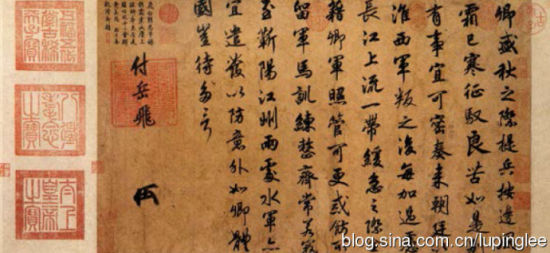 卿盛秋之際提兵按邊風
霜已寒征馭良苦如是
有事宜可密奏來朝廷
淮西軍叛之後每加過慮
長江上流一帶緩急之際
藉卿軍照管可更戒飭所
留軍馬訓練整齊常若寇
至蘄陽江州兩處水軍亦
宜遣發以防意外如卿體
國豈待多言
付岳飛
八徵耄念之寶
太上皇帝之寶
blog.sina.com.cn/lupinglee